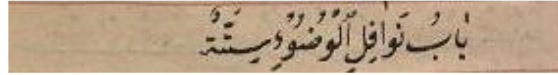 بَابُ نَوَافِلِ الْوُضُوْءِ سِتَّةٌ